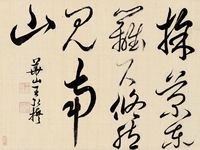 採菊東
籬下悠然
見南
山
華山王弘撰